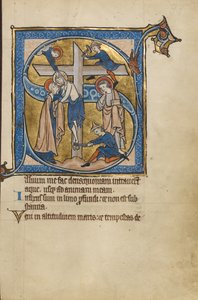 Saluum me fac deus quoniam intrauert
aque usq; ad animam meam.
Infixus sum in limo profundi et non est sub
stantia.
Veni in altitudinem maris et tempestas de